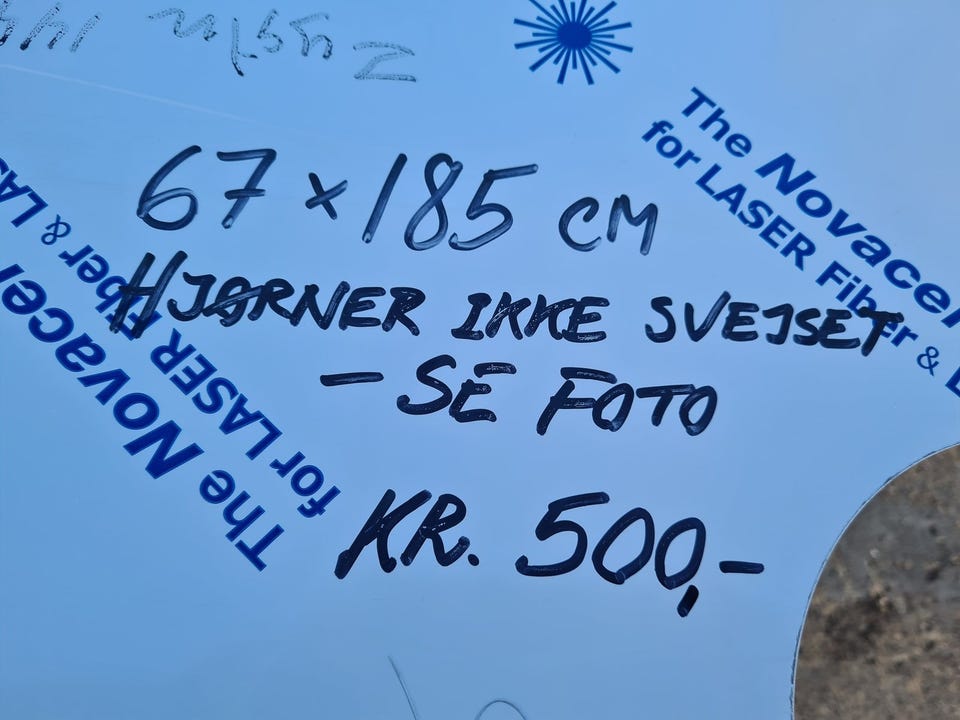 The Novacel
for LASER Fiber &
67 x 185 CM
HJØRNER IKKE SVEJSET
- SE FOTO
KR. 500,-
The Novacel
for LASER Fiber & LAS